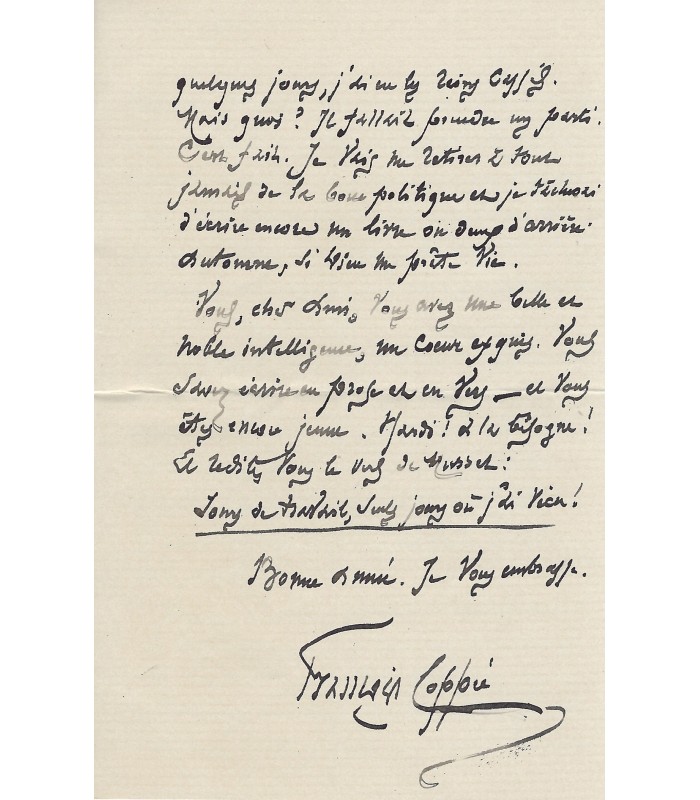 quelques jours, j'ai eu les reins cassés.
Mais quoi ? Il fallait prendre un parti.
C'est fait. Je vais me retirer à tout
jamais de la boue politique et je tâcherai
d'écrire encore un livre ou deux d'arrière-
automne, si Dieu me prête vie.
Vous, cher ami, vous avez une belle et
noble intelligence, un coeur exquis. Vous
savez écrire en prose et en vers — et vous
êtes encore jeune. Hardi ! à la besogne !
Et redites vous le vers de Musset :
Jours de travail, seuls jours où j'ai vécu !
Bonne année. Je vous embrasse.
François Coppée